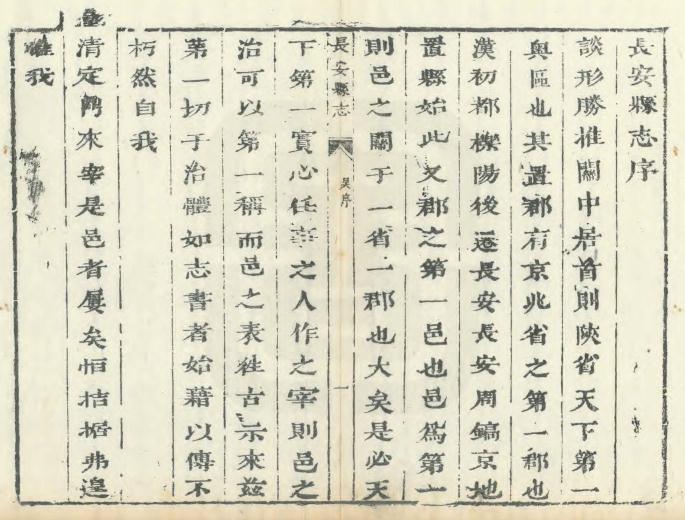 長安縣志序
談形勝推關中居首則陝省天下第一
奧區也其置郡有京兆省之第一郡也
漢初都櫟陽後遷長安長安周鎬京地
置縣始此又郡之第一邑也邑爲第一
則邑之關于一省一郡也大矣是必天
長安縣志
吳序
一
下第一實心任事之人作之宰則邑之
治可以第一稱而邑之表徃古示來茲
第一切于治體如志書者始藉以傳不
朽然自我
清定鼎來宰是邑者屢矣恒拮据弗遑
惟我